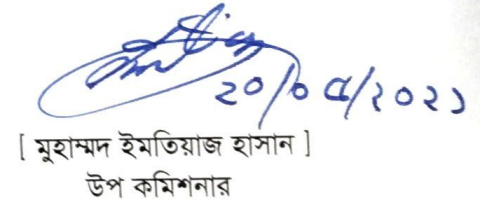 ২০/০৫/২০২১
[ মুহাম্মদ ইমতিয়াজ হাসান ]
উপ কমিশনার